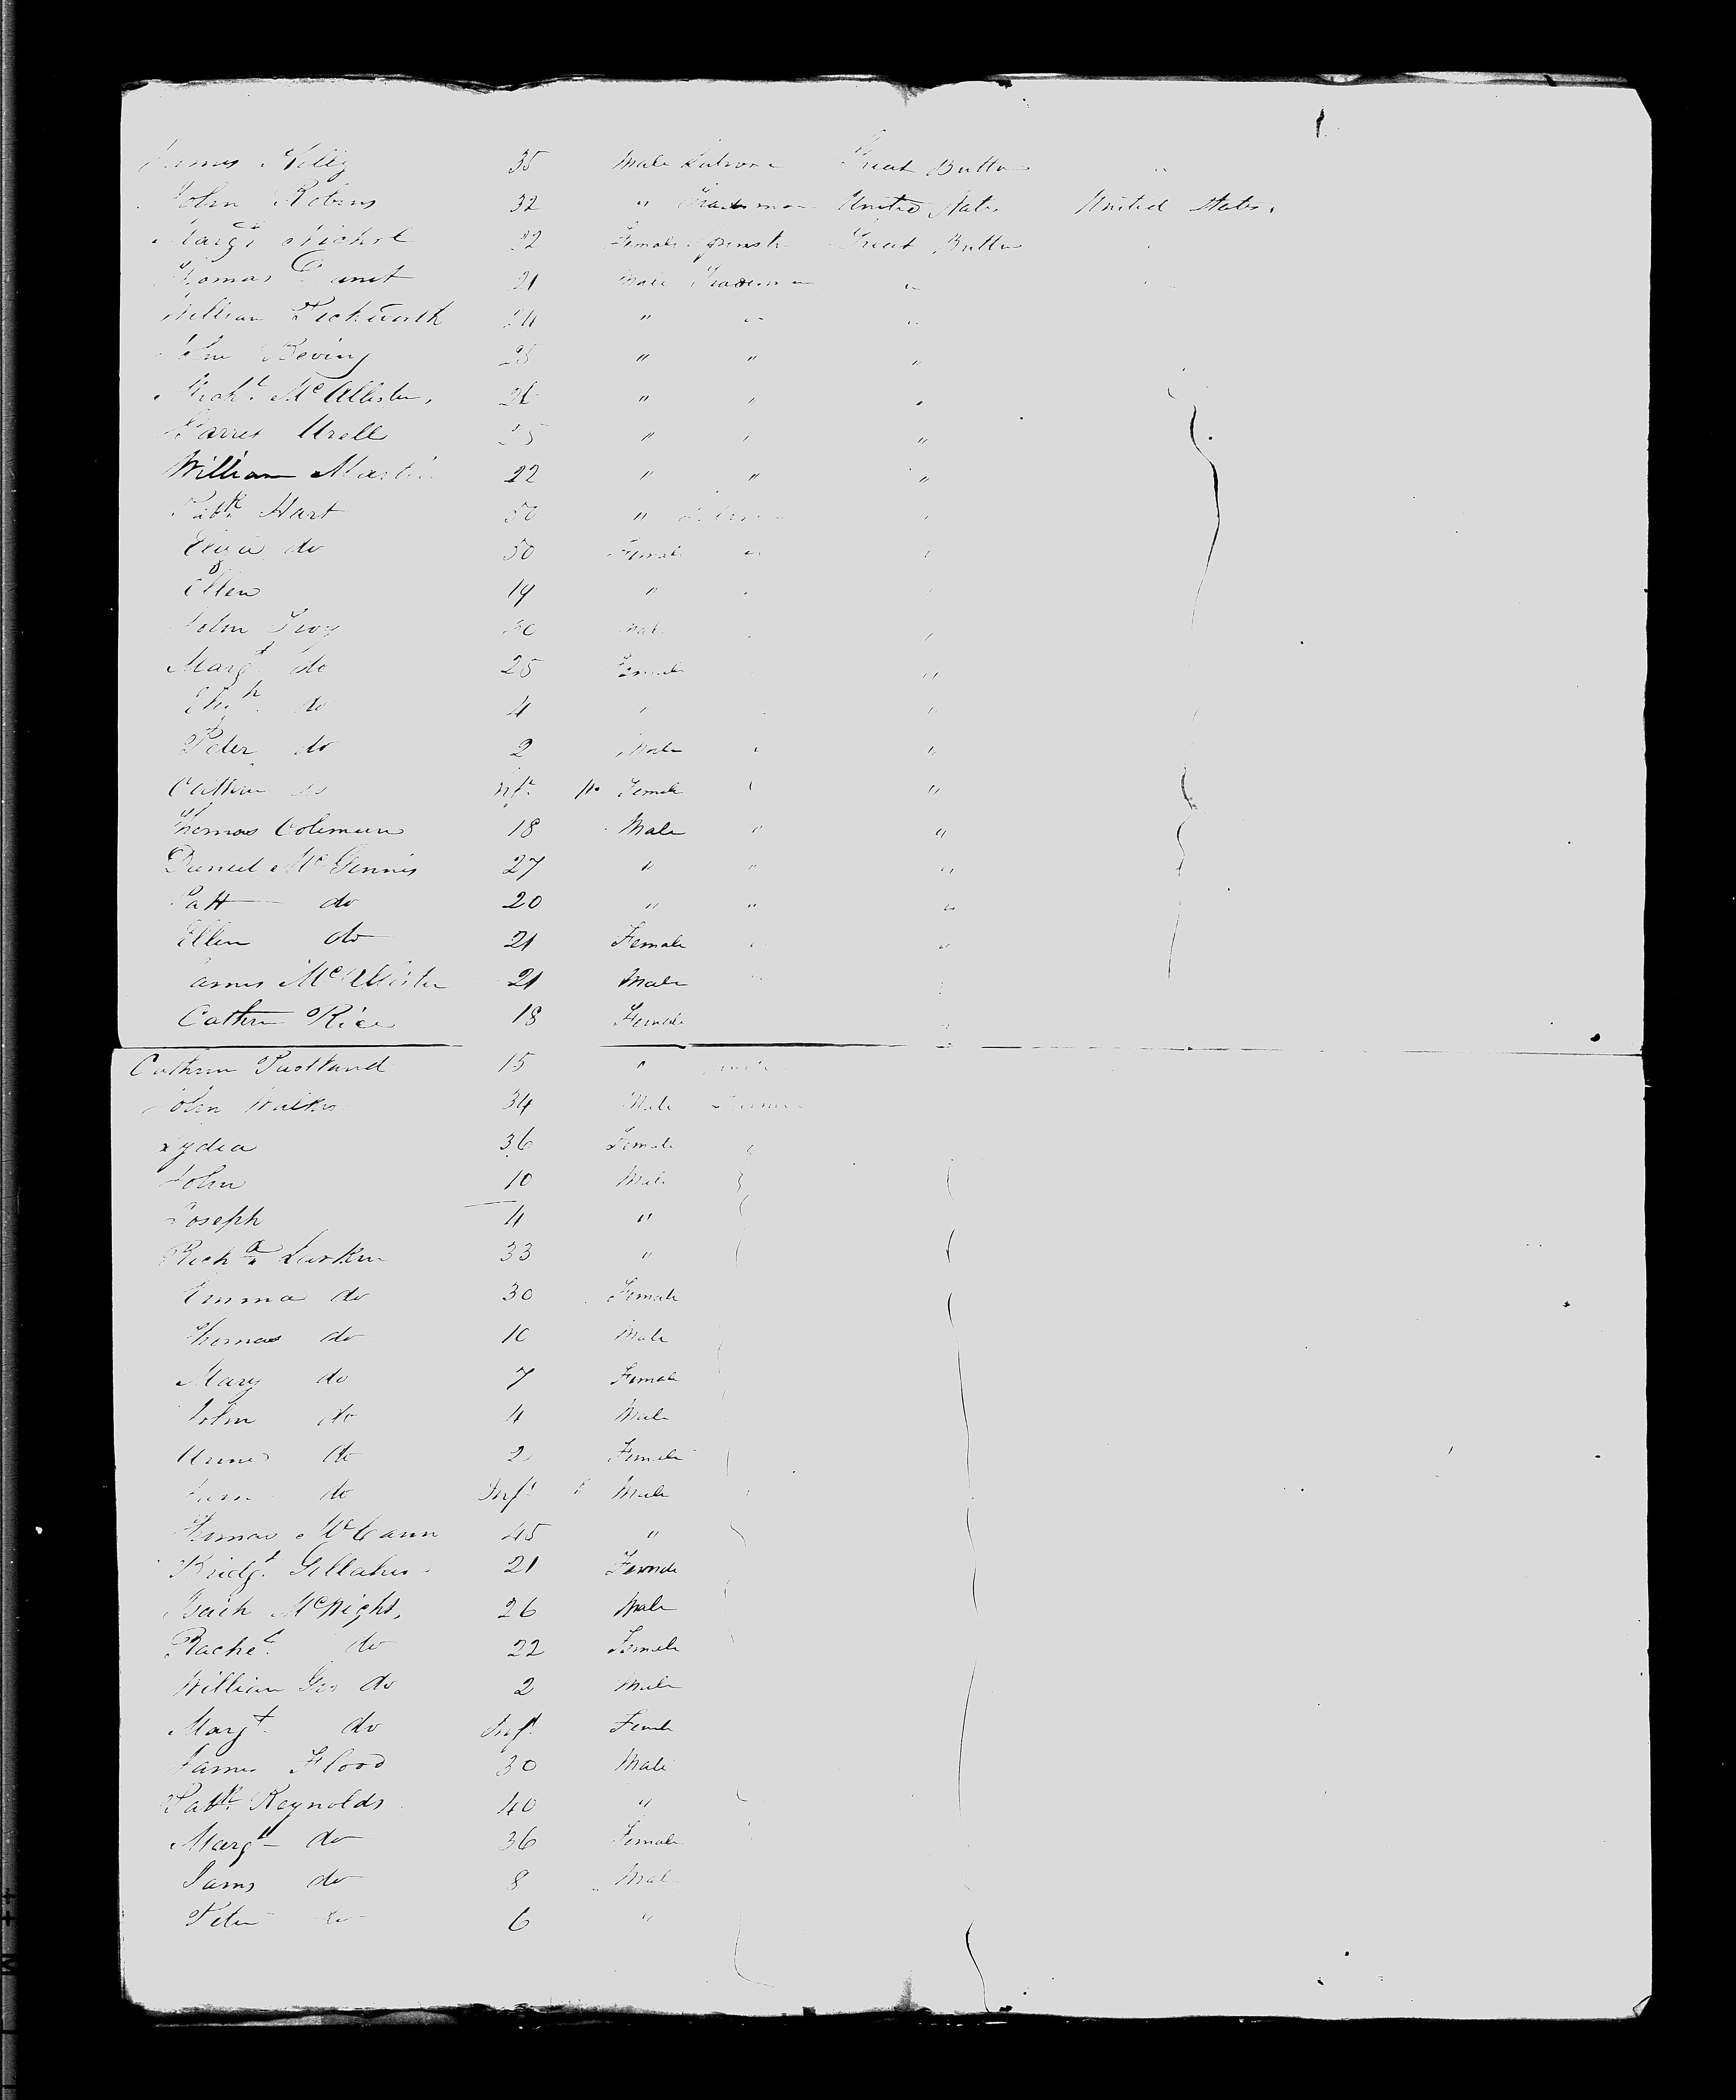 James Kelly 35 Male Labourer Great Britton "
John Robins 32 " Tradesman United States United States.
Margt Nichol 22 Female Spinstr Great Britton
Thomas 21 Male Tradesman "
William Pickworth 24 " " "
John Beving 25 " " "
Michl. McAllister. 26 " " "
Garret Urell 25 " " "
William Martin 22 " " "
Patk. Hart 50 " Labourer "
Eliza do 50 Female " "
Ellen 19 " "
John Troy 30 Male "
Margt do 25 Female "
Elizh. do 4 " "
Peter do 2 Male " "
Cathrin do Inft. Female " "
Thomas Coleman 18 Male " "
Daniel McGennis 27 " " "
Patt do 20 " " "
Ellen do 21 Female " "
James McAllister 21 Male "
Cathrn Rice 18 Female "
Cathrin 15 "
John Walker 34 Male
Lydia 36 Female
John 10 Male
Joseph 4 "
Richd. Larkin 33 "
Emma do 30 Female
Thomas do 10 Male
Mary do 7 Female
John do 4 Male
Anne do 2 Female
do Inft Male
Thomas McCann 45 "
Bridgt. 21 Female
McNight. 26 Male
Rachel. do 22 Female
William Geo do 2 Male
Margt. do Inft. Female
James Flood 30 Male
Patk. Reynolds 40 "
Margt do 36 Female
Jams do 8 Male
Peter do 6 "